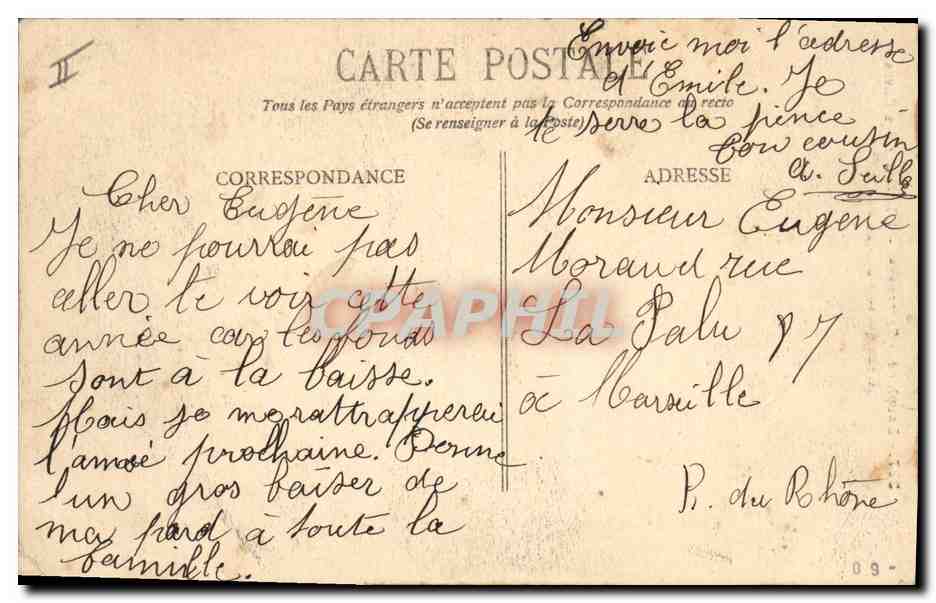 II
CARTE POSTALE
Tous les Pays étrangers n'acceptent pas la Correspondance au recto
(Se renseigner à la Poste)
CORRESPONDANCE
Cher Eugène
Je ne pourrai pas
aller te voir cette
année car les fonds
sont à la baisse.
Mais je me rattrapperai
l'année prochaine. Donne
l'un gros baiser de
ma pard à toute la
famille.
Envoie moi l'adresse
d'Emile. Je
te serre la pince
ton cousin
A.
ADRESSE
Monsieur Eugène
Morand rue
La Palu 87
à Marseille
B. du Rhône
CPAPHIL
09-